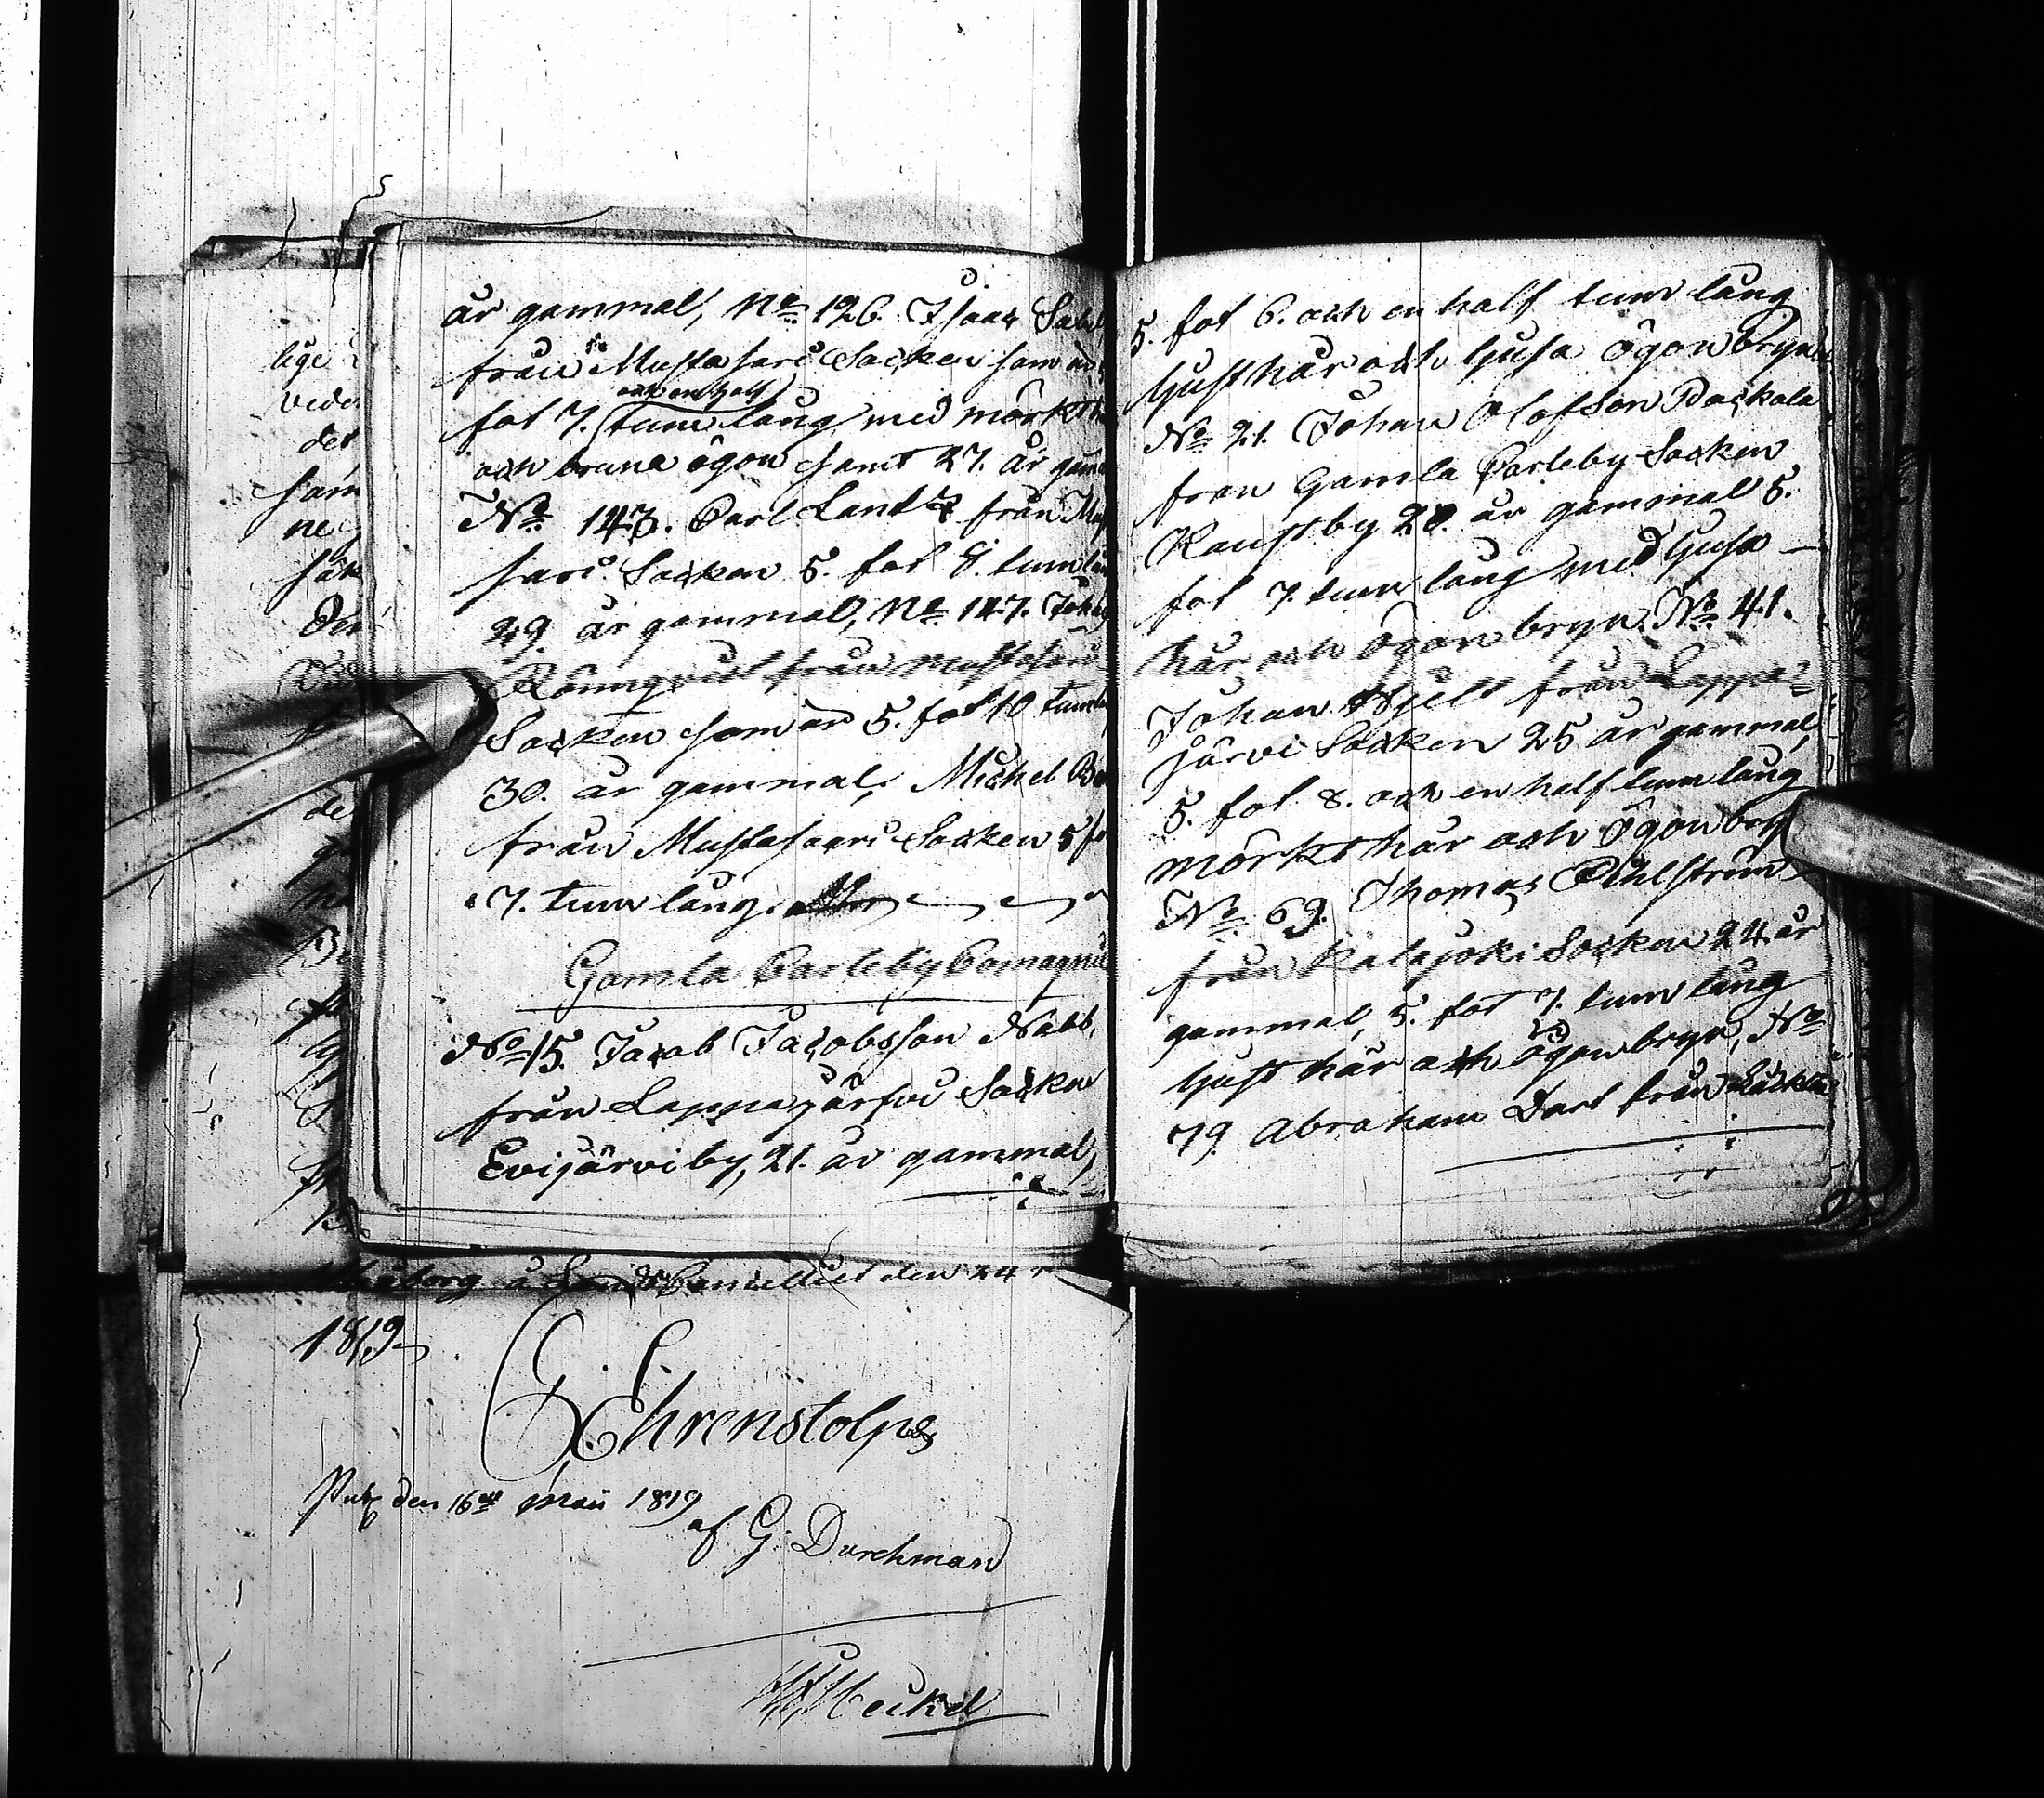 år gammal, No 126. Isaac
från Mustasari Socken som är
fot 7. och en half tum lång med mörkt
och bruna ögon samt 27. år gam
No 143. Carl Lantz från Mus
sari Socken 5. fot 8. tum lån
29. år gammal, No 147. Joh
Rönnqvist från Mustasari
Socken som är 5. fot 10 tum
30. år gammal, Michel
från Mustasaari Socken 5 fo
7. tum lång.
Gamla Carleby Compagnie
No 15. Jacob Jacobsson Nabb,
från Lappajärfvi Socken
Evijärvi by, 21. år gammal,
5. fot 6. och en half tum lång
ljust hår och ljusa ögonbryn
No 21. Johan Olofson Backala
från Gamla Carleby Socken
Kaustby 20. år gammal 5.
fot 7. tum lång med ljusa
hår och ögonbryn. No 41.
Johan Hjelt från Lappa=
järvi Socken 25 år gammal,
5. fot 8. och en half tum lång
mörkt hår och ögonbryn
No 69. Thomas Pihlström
från Kalajoki Socken 24 år
gammal, 5. fot 7. tum lång
ljust hår och ögonbryn, No
79. Abraham Dart från
lige
vede
det
sam
ne
den 24
1819
Ehrenstolpe
Publ den 16de Maii 1819
af G. Durchman